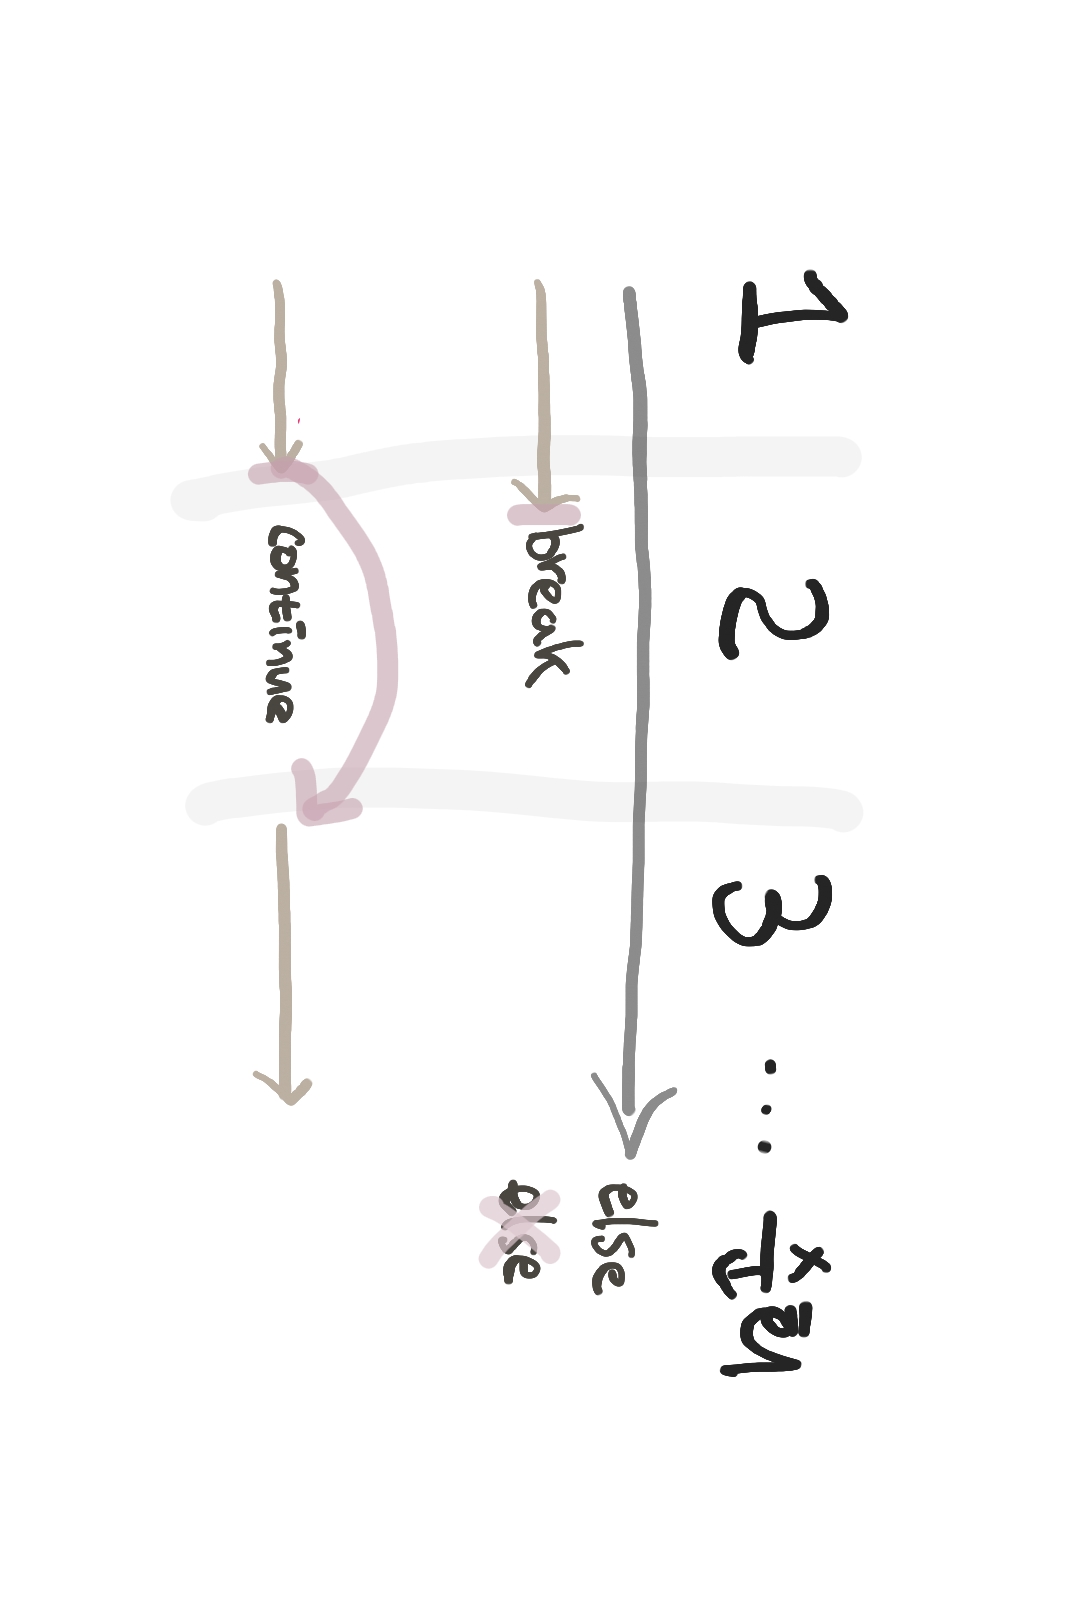 1 2 3 ... 출력
else
break
else
continue